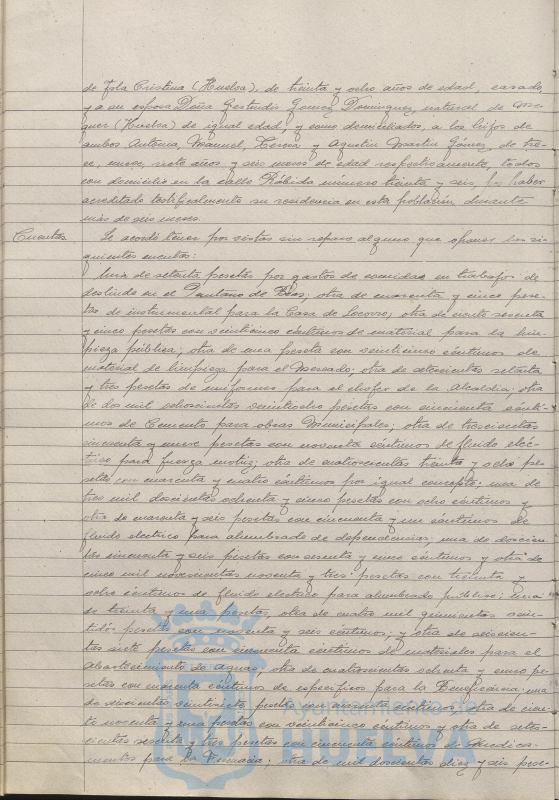 de Isla Cristina (Huelva), de treinta y ocho años de edad, casado,
y a su esposa Doña Gertrudis Gomez Dominguez, natural de Mo-
guer (Huelva) de igual edad, y como domiciliados, a los hijos de
ambos Antonia, Manuel, Teresa y Agustin Martin Gómez, de tre-
ce, nueve, siete años y seis meses de edad respectivamente, todos
con domicilio en la calle Rábida número treinta y seis, por haber
acreditado testificalmente su residencia en esta población durante
más de seis meses.
Cuentas Se acordó tener por vistas sin reparo alguno que oponer las si-
guientes cuentas:
Una de setenta pesetas por gastos de comidas en trabajos de
deslinde en el Pantano de Beas; otra de cuarenta y cinco pese-
tas de instrumental para la Casa de Socorro; otra de ciento sesenta
y cinco pesetas con veinticinco céntimos de material para la lim-
pieza pública; otra de una peseta con veinticinco céntimos de
material de limpieza para el Mercado; otra de setecientas setenta
y tres pesetas de uniformes para el chofer de la Alcaldía; otra
de dos mil ochocientas veintiocho pesetas con cincuenta cénti-
mos de Cemento para obras Municipales; otra de trescientas
cincuenta y nueve pesetas con noventa céntimos de fluido eléc-
trico para fuerza motriz; otra de cuatrocientas treinta y ocho pe-
setas con cuarenta y cuatro céntimos por igual concepto; una de
tres mil doscientas ochenta y cinco pesetas con ocho céntimos y
otra de cuarenta y seis pesetas con cincuenta y un céntimos de
fluido electrico para alumbrado de dependencias; una de doscien-
tas cincuenta y seis pesetas con sesenta y cinco céntimos y otra de
cinco mil novecientas noventa y tres pesetas con treinta y
ocho céntimos de fluido electrico para alumbrado público; una
de treinta y una pesetas, otra de cuatro mil quinientas vein-
tidós pesetas con noventa y seis céntimos; y otra de seiscien-
tas siete pesetas con cincuenta céntimos de materiales para el
Abastecimiento de Aguas; otra de cuatrocientas ochenta y cinco pe-
setas con cuarenta céntimos de específicos para la Beneficencia; una
de doscientas veintisiete pesetas con cuarenta céntimos, otra de cien-
to noventa y una pesetas con veinticinco céntimos y otra de sete-
cientas sesenta y tres pesetas con cincuenta céntimos de medica-
mentos para la Farmacia; otra de mil doscientas diez y seis pese-